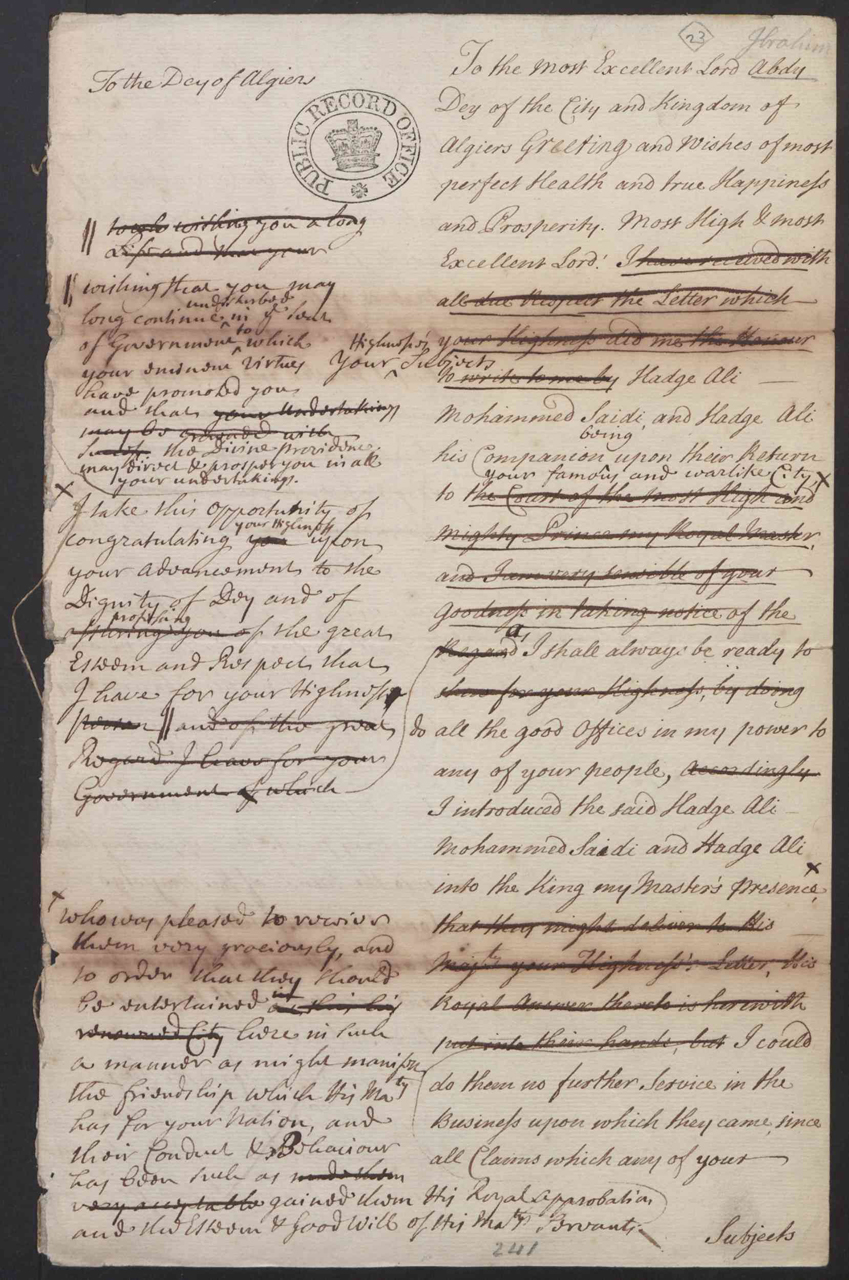 23
Ibrahim
To the Dey of Algiers
PUBLIC RECORD OFFICE
wishing you a long
Life and that your
wishing that you may
long continue undisturbed in ye Seat
of Government to which
your eminent Virtues
have promoted you
and that your Undertakings
may be crowned with
Success. the Divine Providence
may direct & prosper you in all
your undertakings.
x
I take this opportunity of
congratulating you your Highness upon
your Advancement to the
Dignity of Dey and of
assuring you professing of the great
Esteem and Respect that
I have for your Highness
person and of the great
Regard I have for your
Government of which
x
who was pleased to receive
them very graciously, and
to order that they should
be entertained in at this his
renowned City here in such
a manner as might manifest
the friendship which His Maty
has for your Nation, and
their Conduct & Behaviour
has been such as made them
very acceptable gained them His Royal Approbation
and the Esteem & Good Will of His Matys Servants
To the Most Excellent Lord Abdy
Dey of the City and Kingdom of
Algiers Greeting and Wishes of most
perfect Health and true Happiness
and Prosperity. Most High & most
Excellent Lord! I have received with
all due Respect the Letter which
your Highness did me the Honour
Your Highness's Subjects
to write to me by Hadge Ali
Mohammed Saidi and Hadge Ali
his Companion being upon their Return
your famous and warlike City x
to the Court of the Most High and
Mighty Prince my Royal Master,
and I am very sensible of your
goodness in taking notice of the
Regard I shall always be ready to
shew for your Highness, by doing
do all the good Offices in my power to
any of your people, Accordingly
I introduced the said Hadge Ali
Mohammed Saidi and Hadge Ali
into the King my Master's presence x
that they might deliver to His
Majty your Highness's Letter, His
Royal Answer thereto is herewith
put into their hands, but I could
do them no further Service in the
Business upon which they came, since
all Claims which any of your
Subjects
241